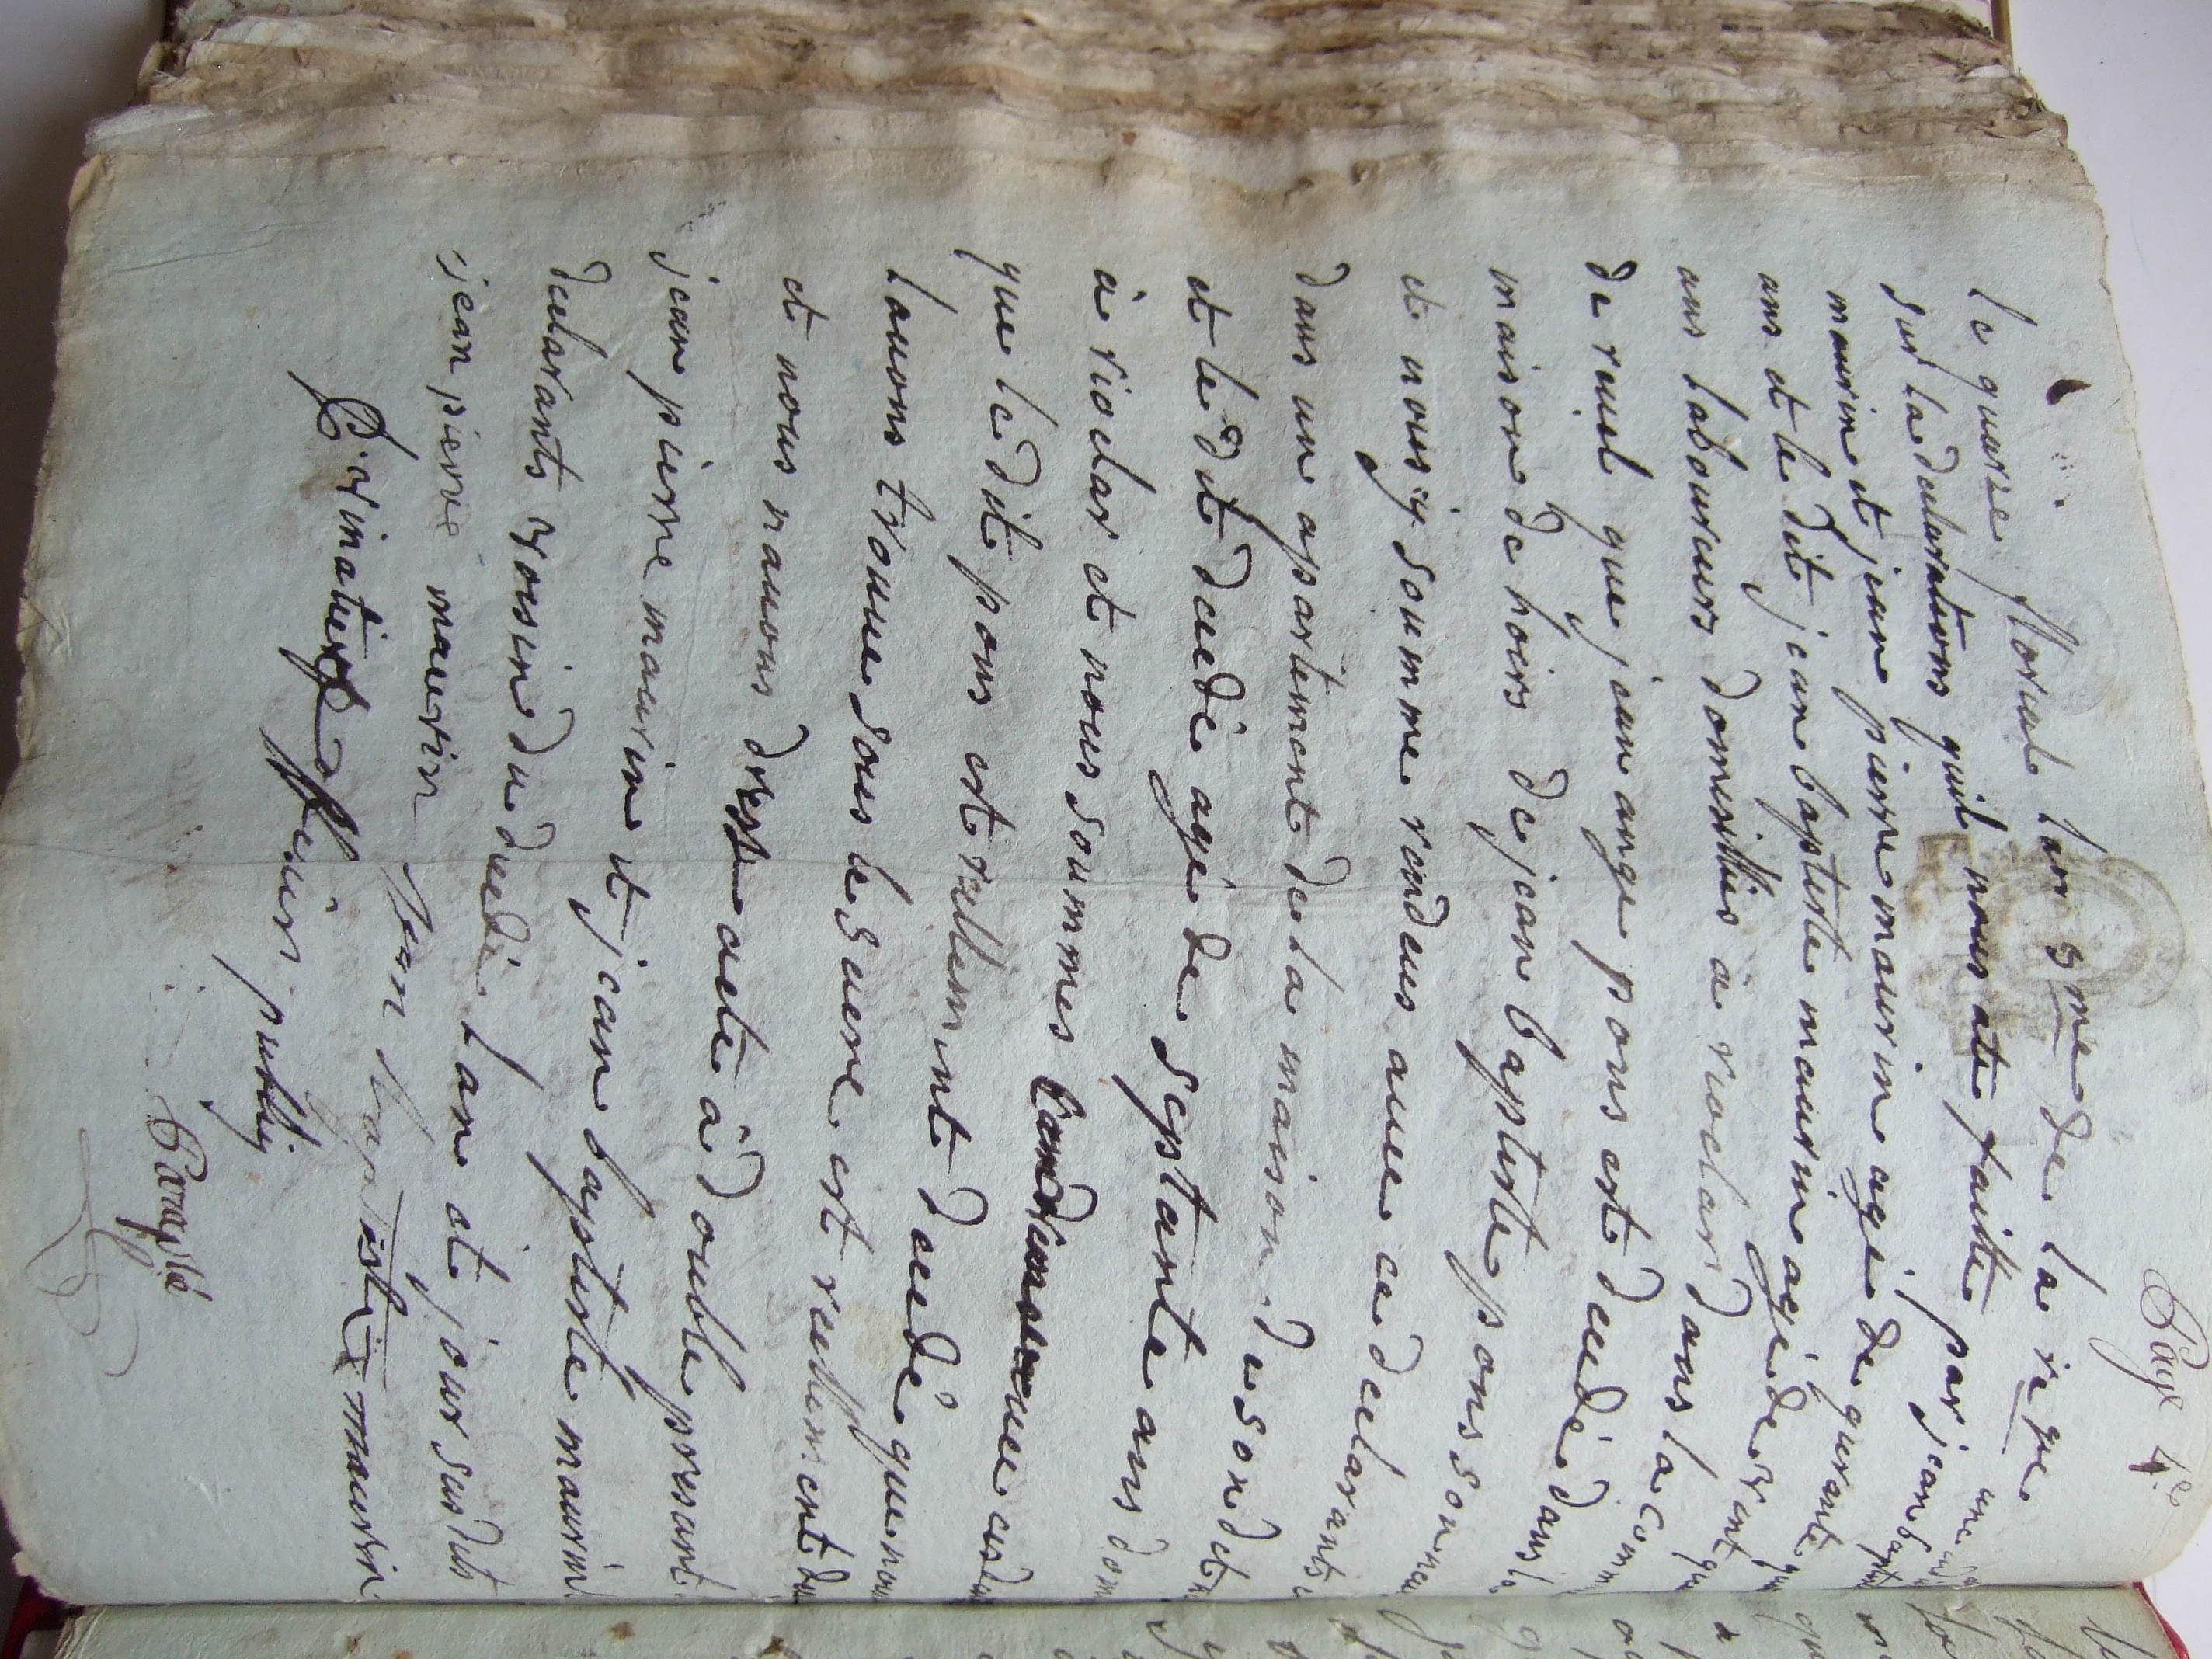 Page 4e
le quinze floreal lan 5me de la repe une et
sur la declarations quil nous ate faitte par jean baptiste
maurin et jean pierre maurin agé de quarante
ans et le dit jean baptiste maurin agé de vint
ans laboureurs domisilliés a rioclar dans la comm
de reuel que jean ange pons est decedé dans la
maison de hoirs de jean baptiste pons son neu
et nous y somme rendeus auue ce declarants
dans un apartement de la maison du son dit
et le dit decedé agé de septante ans dom
a rioclar et nous sommes
que le dit pons est rellement decedé que nous
lauons trouue sous le suere
et nous nauons dresse acte a double presant
jean pierre maurin et jean baptiste maurin
declarants vousin du decedé lan et jour susdits
jean pierre maurin
jean baptiste maurin
oficier public
Paraphé